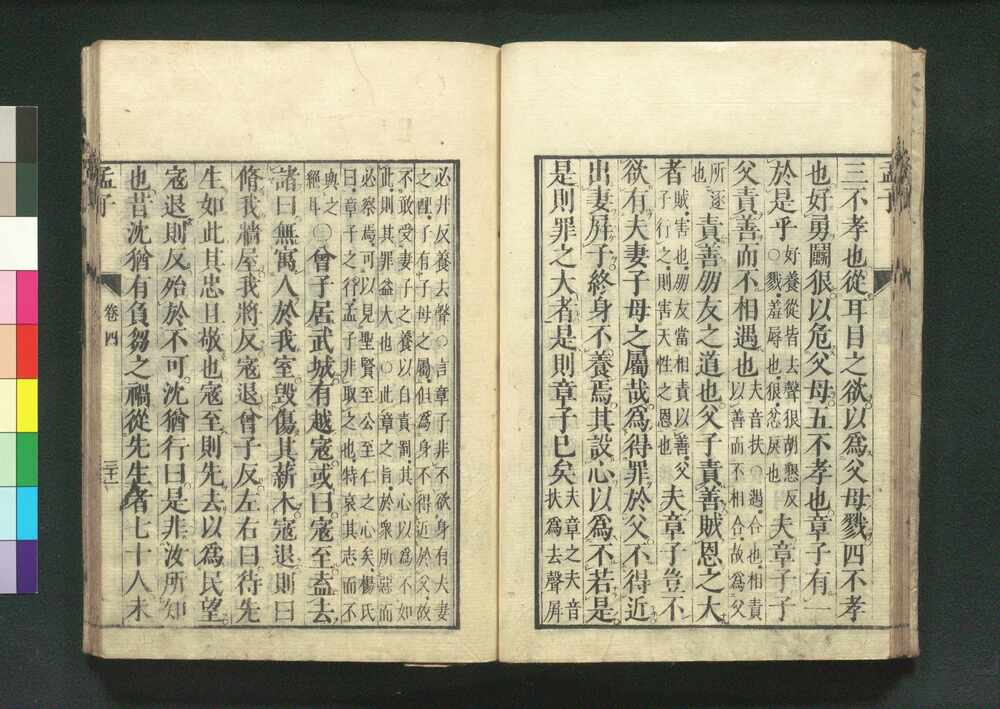 孟子
三不孝也從耳目之欲以爲父母戮四不孝
也好勇鬭狠以危父母五不孝也章子有一
於是乎好養從皆去聲狠胡懇反○戮羞辱也狠忿戾也夫章子子
父責善而不相遇也夫音扶○遇合也相責以善而不相合故爲父
所逐也責善朋友之道也父子責善賊恩之大
者賊害也朋友當相責以善父子行之則害天性之恩也夫章子豈不
欲有夫妻子母之屬哉爲得罪於父不得近
出妻屏子終身不養焉其設心以爲不若是
是則罪之大者是則章子已矣夫章之夫音扶爲去聲屏
必井反養去聲○言章子非不欲身有夫妻
之配子有子母之屬但爲身不得近於父故
不敢受妻子之養以自責罰其心以爲不如
此則其罪益大也○此章之旨於衆所惡而
必察焉可以見聖賢至公至仁之心矣楊氏
曰章子之行孟子非取之也特哀其志而不
與之絕耳○曾子居武城有越寇或曰寇至盍去
諸曰無寓人於我室毀傷其薪木寇退則曰
脩我牆屋我將反寇退曾子反左右曰待先
生如此其忠且敬也寇至則先去以爲民望
寇退則反殆於不可沈猶行曰是非汝所知
也昔沈猶有負芻之禍從先生者七十人未
孟子
卷四